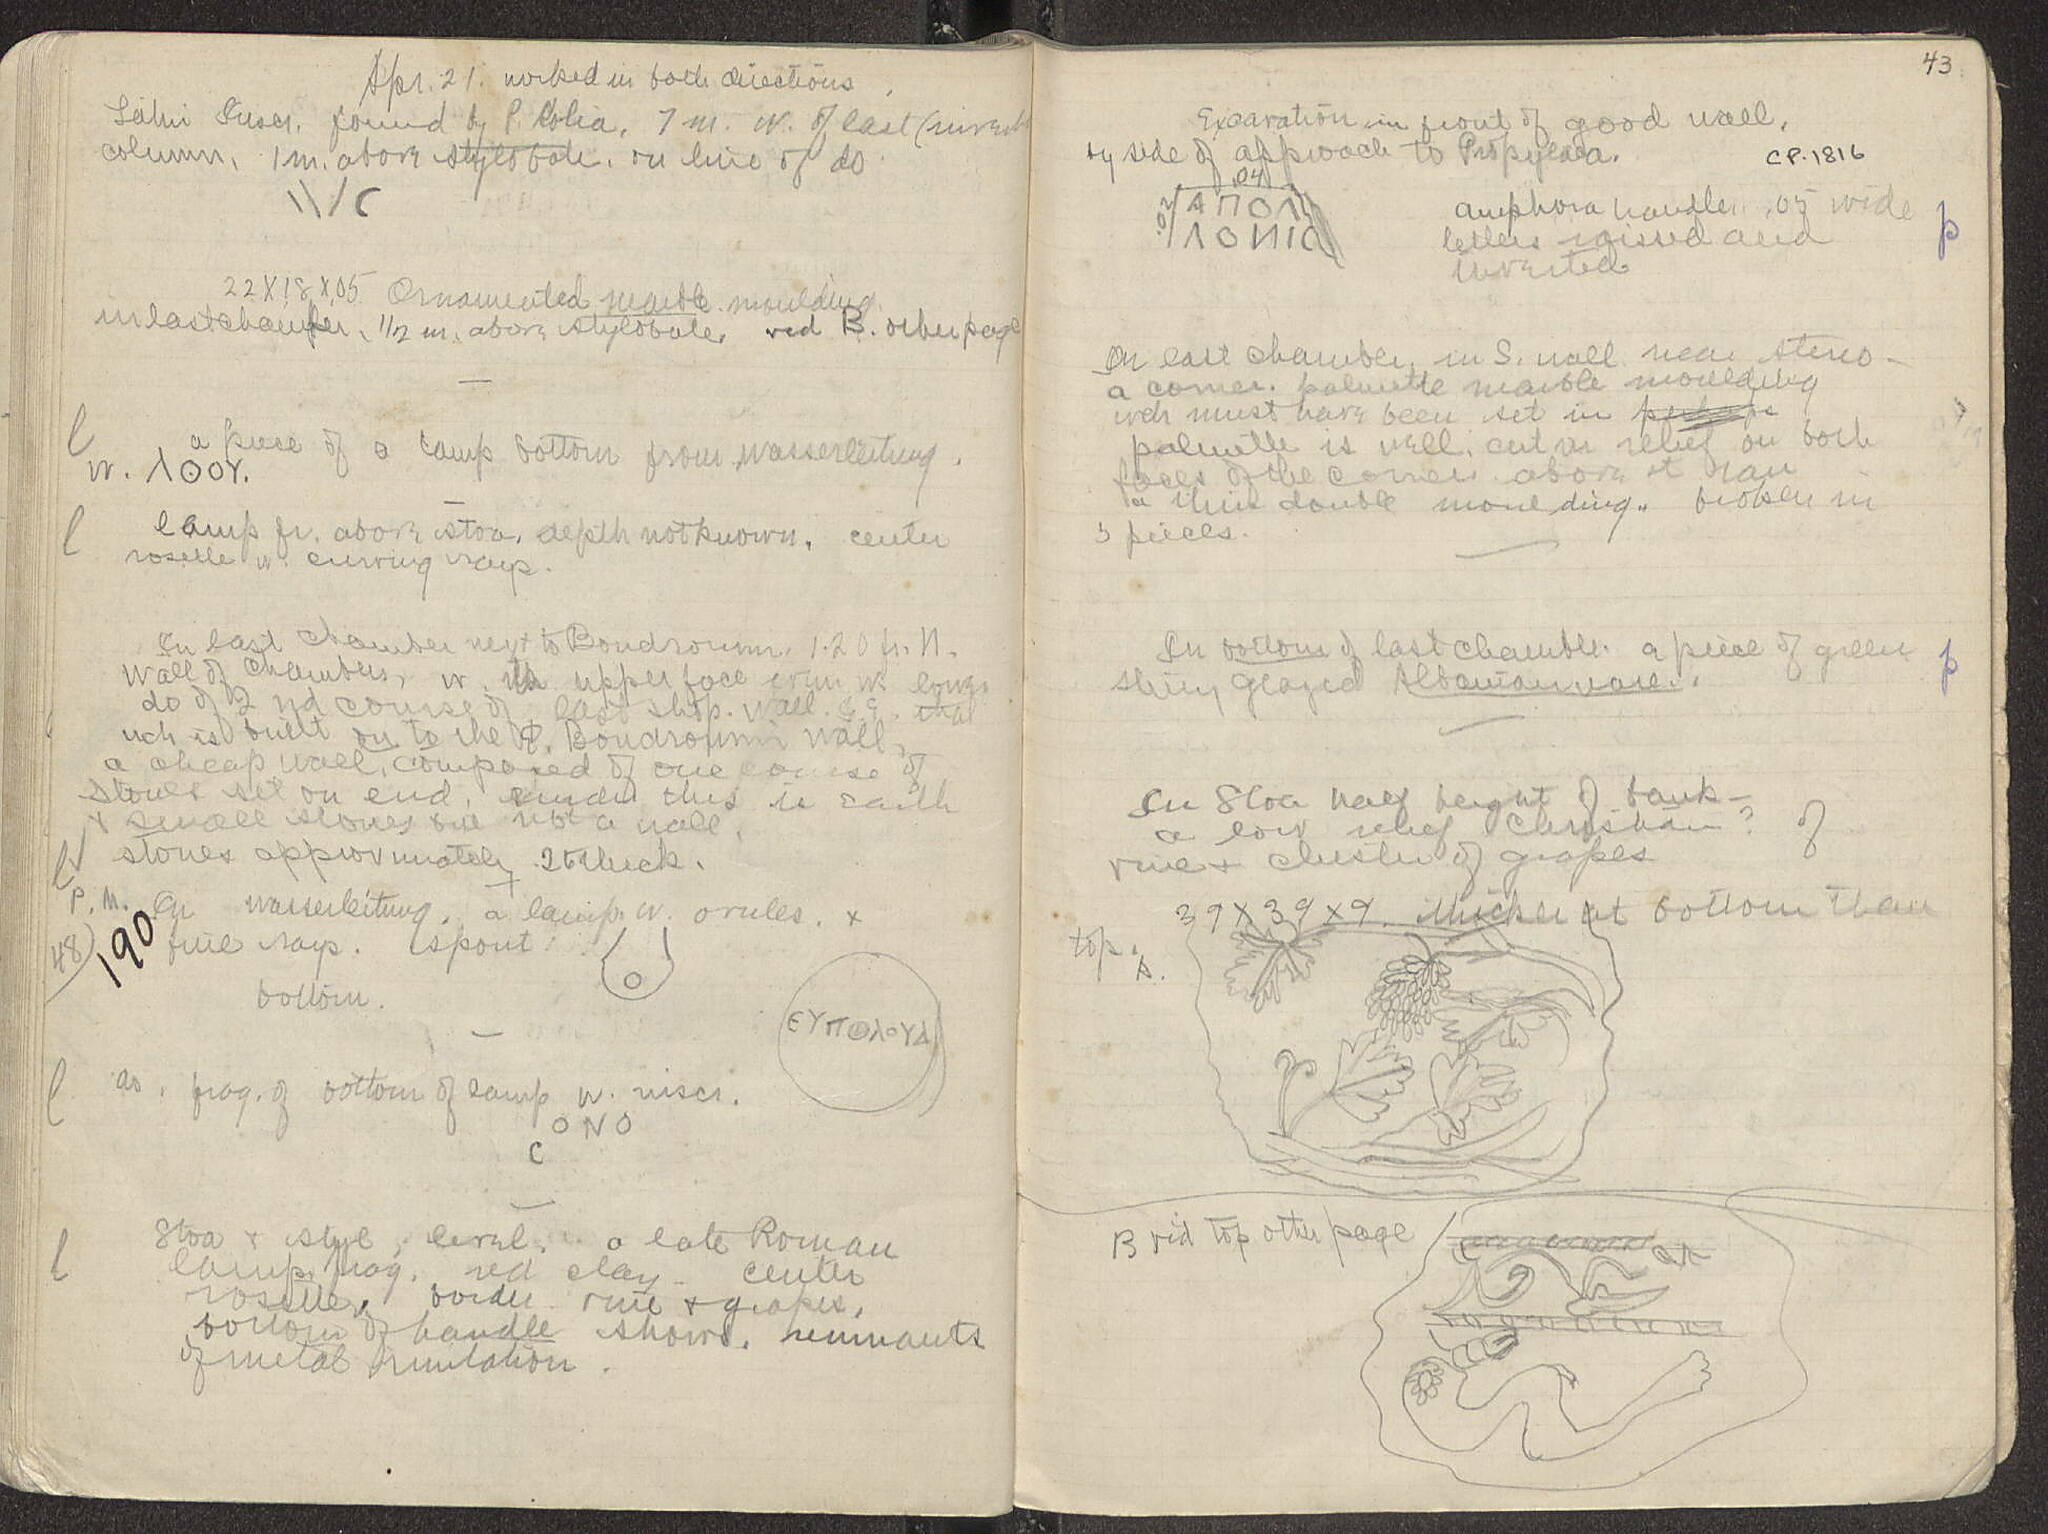 Apr. 21. worked in both directions.
Latin Inscr. found by P. Kolia, 7 m. w. of last
column, 1 m. above stylobate, on line of do.
\\/C
22 X 18 X 05 Ornamented marble moulding
in last chamber, 1/2 m. above stylobate, vid B. other page
l
a piece of a lamp bottom from Wasserleitung.
w. ΛΟΟΥ.
l
lamp fr. above stoa, depth not known, center
rosette w. curving rays.
In last chamber next to Boudroumi, 1.20 fr. N.
wall of chambers, w. upper face even w. lower
do of 2nd course of last shop wall.
wch is built on to the Boudroumi wall,
a cheap wall, composed of one course of
stones set on end, under this is earth
+ small stones but not a wall.
stones approximately 25 thick.
P.M. In Wasserleitung, a lamp w. ovules +
48) 190 fine rays. spout
bottom.
ЄΥΠΟΛΟΥΔ
l
do. frag. of bottom of lamp w. inscr.
ONO
C
l
Stoa + styl. level. a late Roman
lamp frag. red clay. center
rosette, border vine + grapes,
bottom of handle shows remnants
of metal imitation.
43
Excavation in front of good wall,
by side of approach to Propylaea.
CP. 1816
.04
.02
ΑΠΟΛ
ΛΟΝΙΟ
amphora handle .05 wide
letters raised and
inverted
p
In last chamber, in S. wall near stereo-
a corner. palmette marble moulding
wch must have been set in
palmette is well cut in relief on both
faces of the corner above it ran
a thin double moulding. broken in
3 pieces.
In bottom of last chamber a piece of green
shiny glazed Albanian ware.
p
In Stoa half height of bank -
a low relief Christian? of
vine + cluster of grapes
39 X 39 X 9. thicker at bottom than
top. A.
B vid top other page